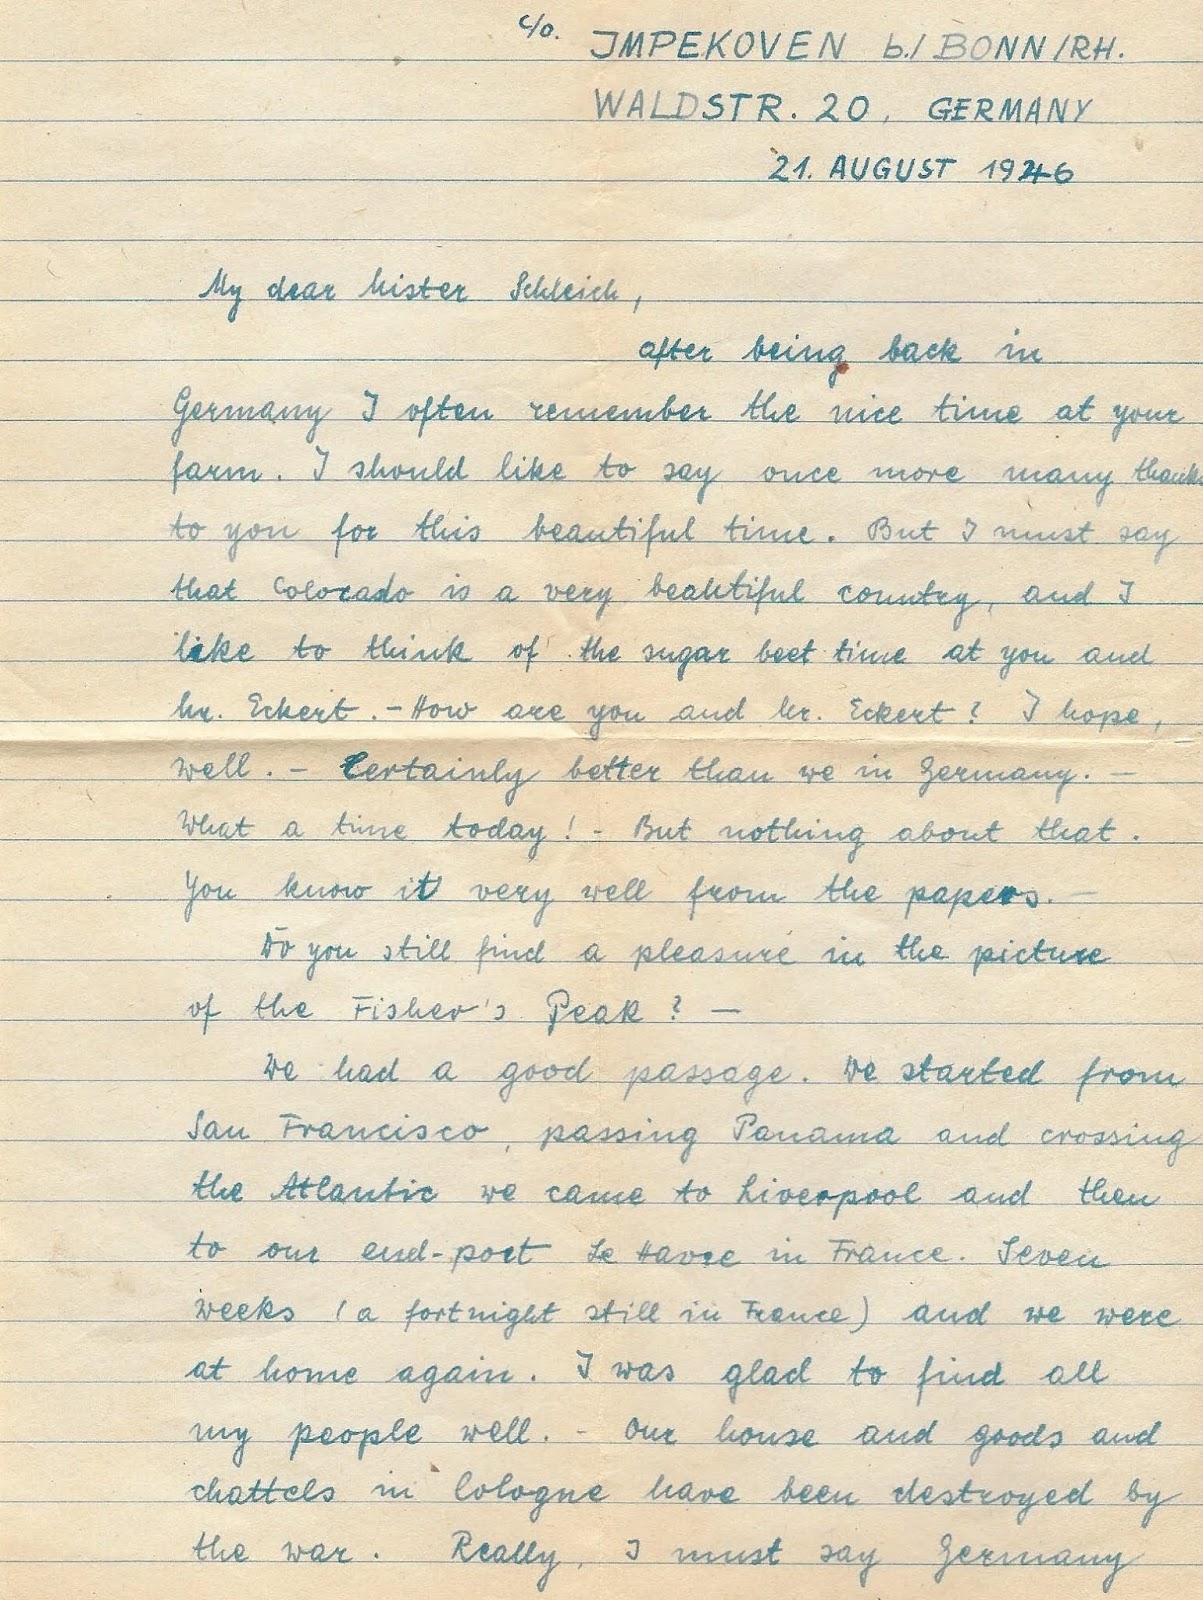 c/o. IMPEKOVEN b./BONN/RH.
WALDSTR. 20, GERMANY
21. AUGUST 1946
My dear Mister Schleich,
after being back in
Germany I often remember the nice time at your
farm. I should like to say once more many thanks
to you for this beautiful time. But I must say
that Colorado is a very beautiful country, and I
like to think of the sugar beet time at you and
Mr. Eckert. - How are you and Mr. Eckert? I hope,
well. - Certainly better than we in Germany. -
What a time today! - But nothing about that.
You know it very well from the papers. -
Do you still find a pleasure in the picture
of the Fisher's Peak? -
We had a good passage. We started from
San Francisco, passing Panama and crossing
the Atlantic we came to Liverpool and then
to our end-port Le Havre in France. Seven
weeks (a fortnight still in France) and we were
at home again. I was glad to find all
my people well. - Our house and goods and
chattels in Cologne have been destroyed by
the war. Really, I must say Germany